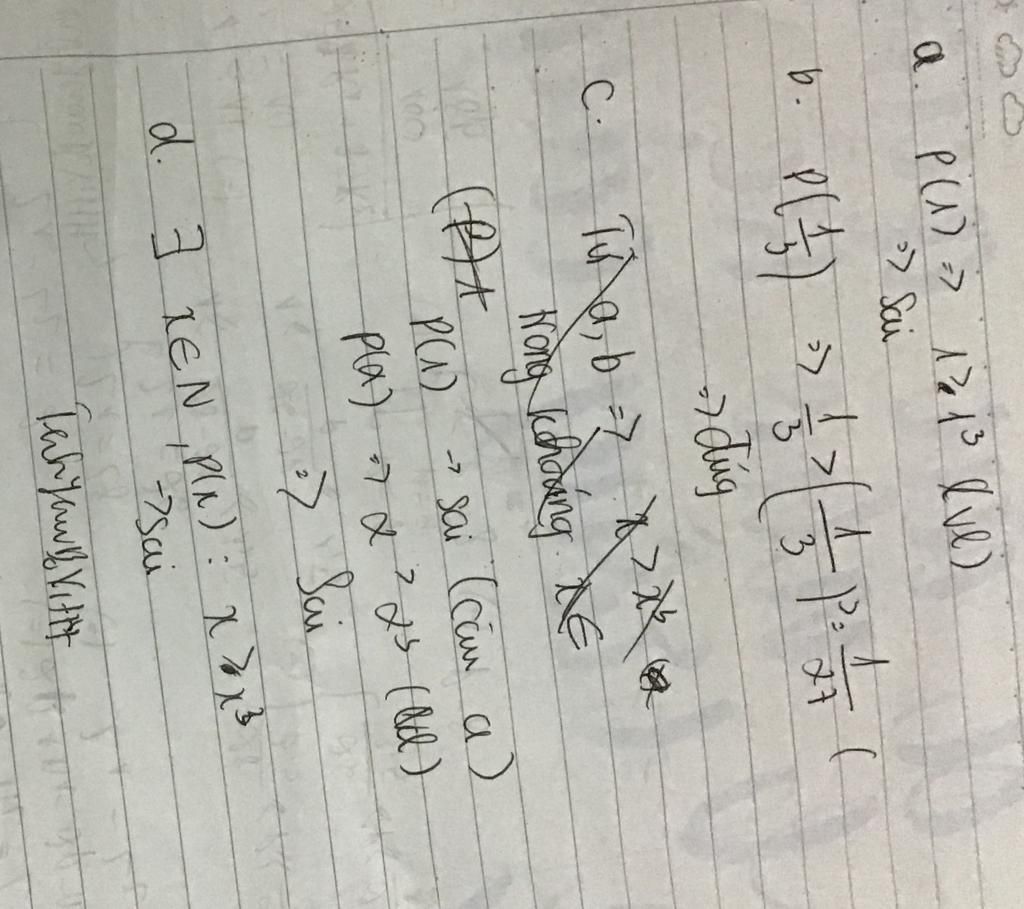 a. P(1) => 1 > 1³ (vl)
=> Sai
b. P(1/3) => 1/3 > (1/3)³ = 1/27 (
=> đúg
c. Từ a, b => x > x³
trong khoảng x ∈
P(1) -> sai (câu a)
P(2) => 2 > 2³ (vl)
=> Sai
d. ∃ x ∈ N, P(x) : x > x³
-> Sai